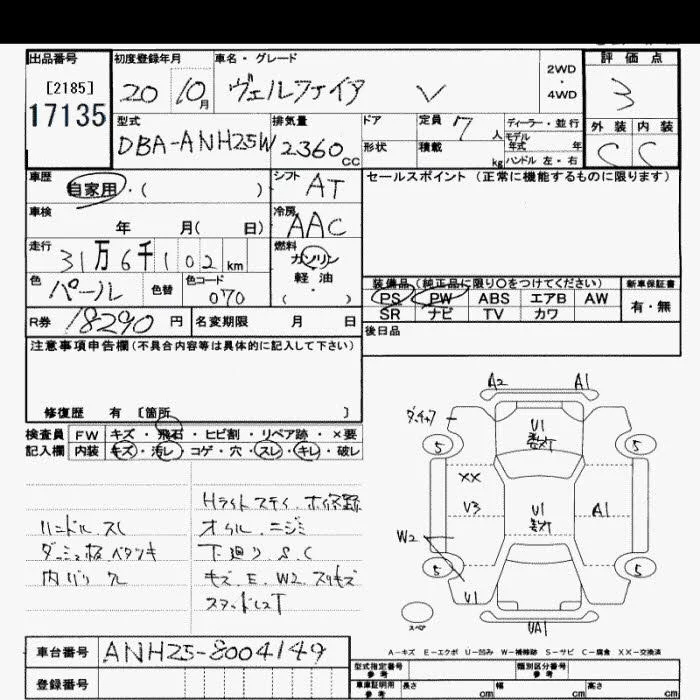 出品番号
[2185]
17135
初度登録年月
20 10月
車名・グレード
ヴェルファイア V
2WD
・
4WD
評価点
3
外装 内装
C C
型式
DBA-ANH25W
排気量
2360cc
ドア
形状
定員 7人
積載 kg
ディーラー・並行
モデル
年式 年
ハンドル 左・右
車歴
自家用・( )
シフト
AT
セールスポイント (正常に機能するものに限ります)
車検
年 月( 日)
冷房
AAC
走行
31万6千102km
燃料
ガソリン
軽油
( ・ )
色
パール
色替
色コード
070
装備品(純正品に限り○をつけてください)
新車保証書
PS PW ABS エアB AW
SR ナビ TV カワ
有・無
R券 18290円
名変期限 月 日
後日品
注意事項申告欄(不具合内容等は具体的に記入して下さい)
修復歴 有 〔箇所 〕
検査員
記入欄
FW キズ・飛石・ヒビ割・リペア跡・×要
内装 キズ・汚レ・コゲ・穴・スレ・キレ・破レ
ハンドル スレ
ダッシュ板 ベタツキ
オイル ニジミ
下廻り S C
キズ E W2 スリキズ
A2 A1
U1
5 5
XX
V3
U1
A1
W2
5 5
V1
UA1
スペア
A-キズ E-エクボ U-凹み W-補修跡 S-サビ C-腐食 XX-交換済
車台番号 ANH25-8004149
登録番号
型式指定番号
参考
類別区分番号
参考
車庫証明用
参考
長さ cm 幅 cm 高さ cm